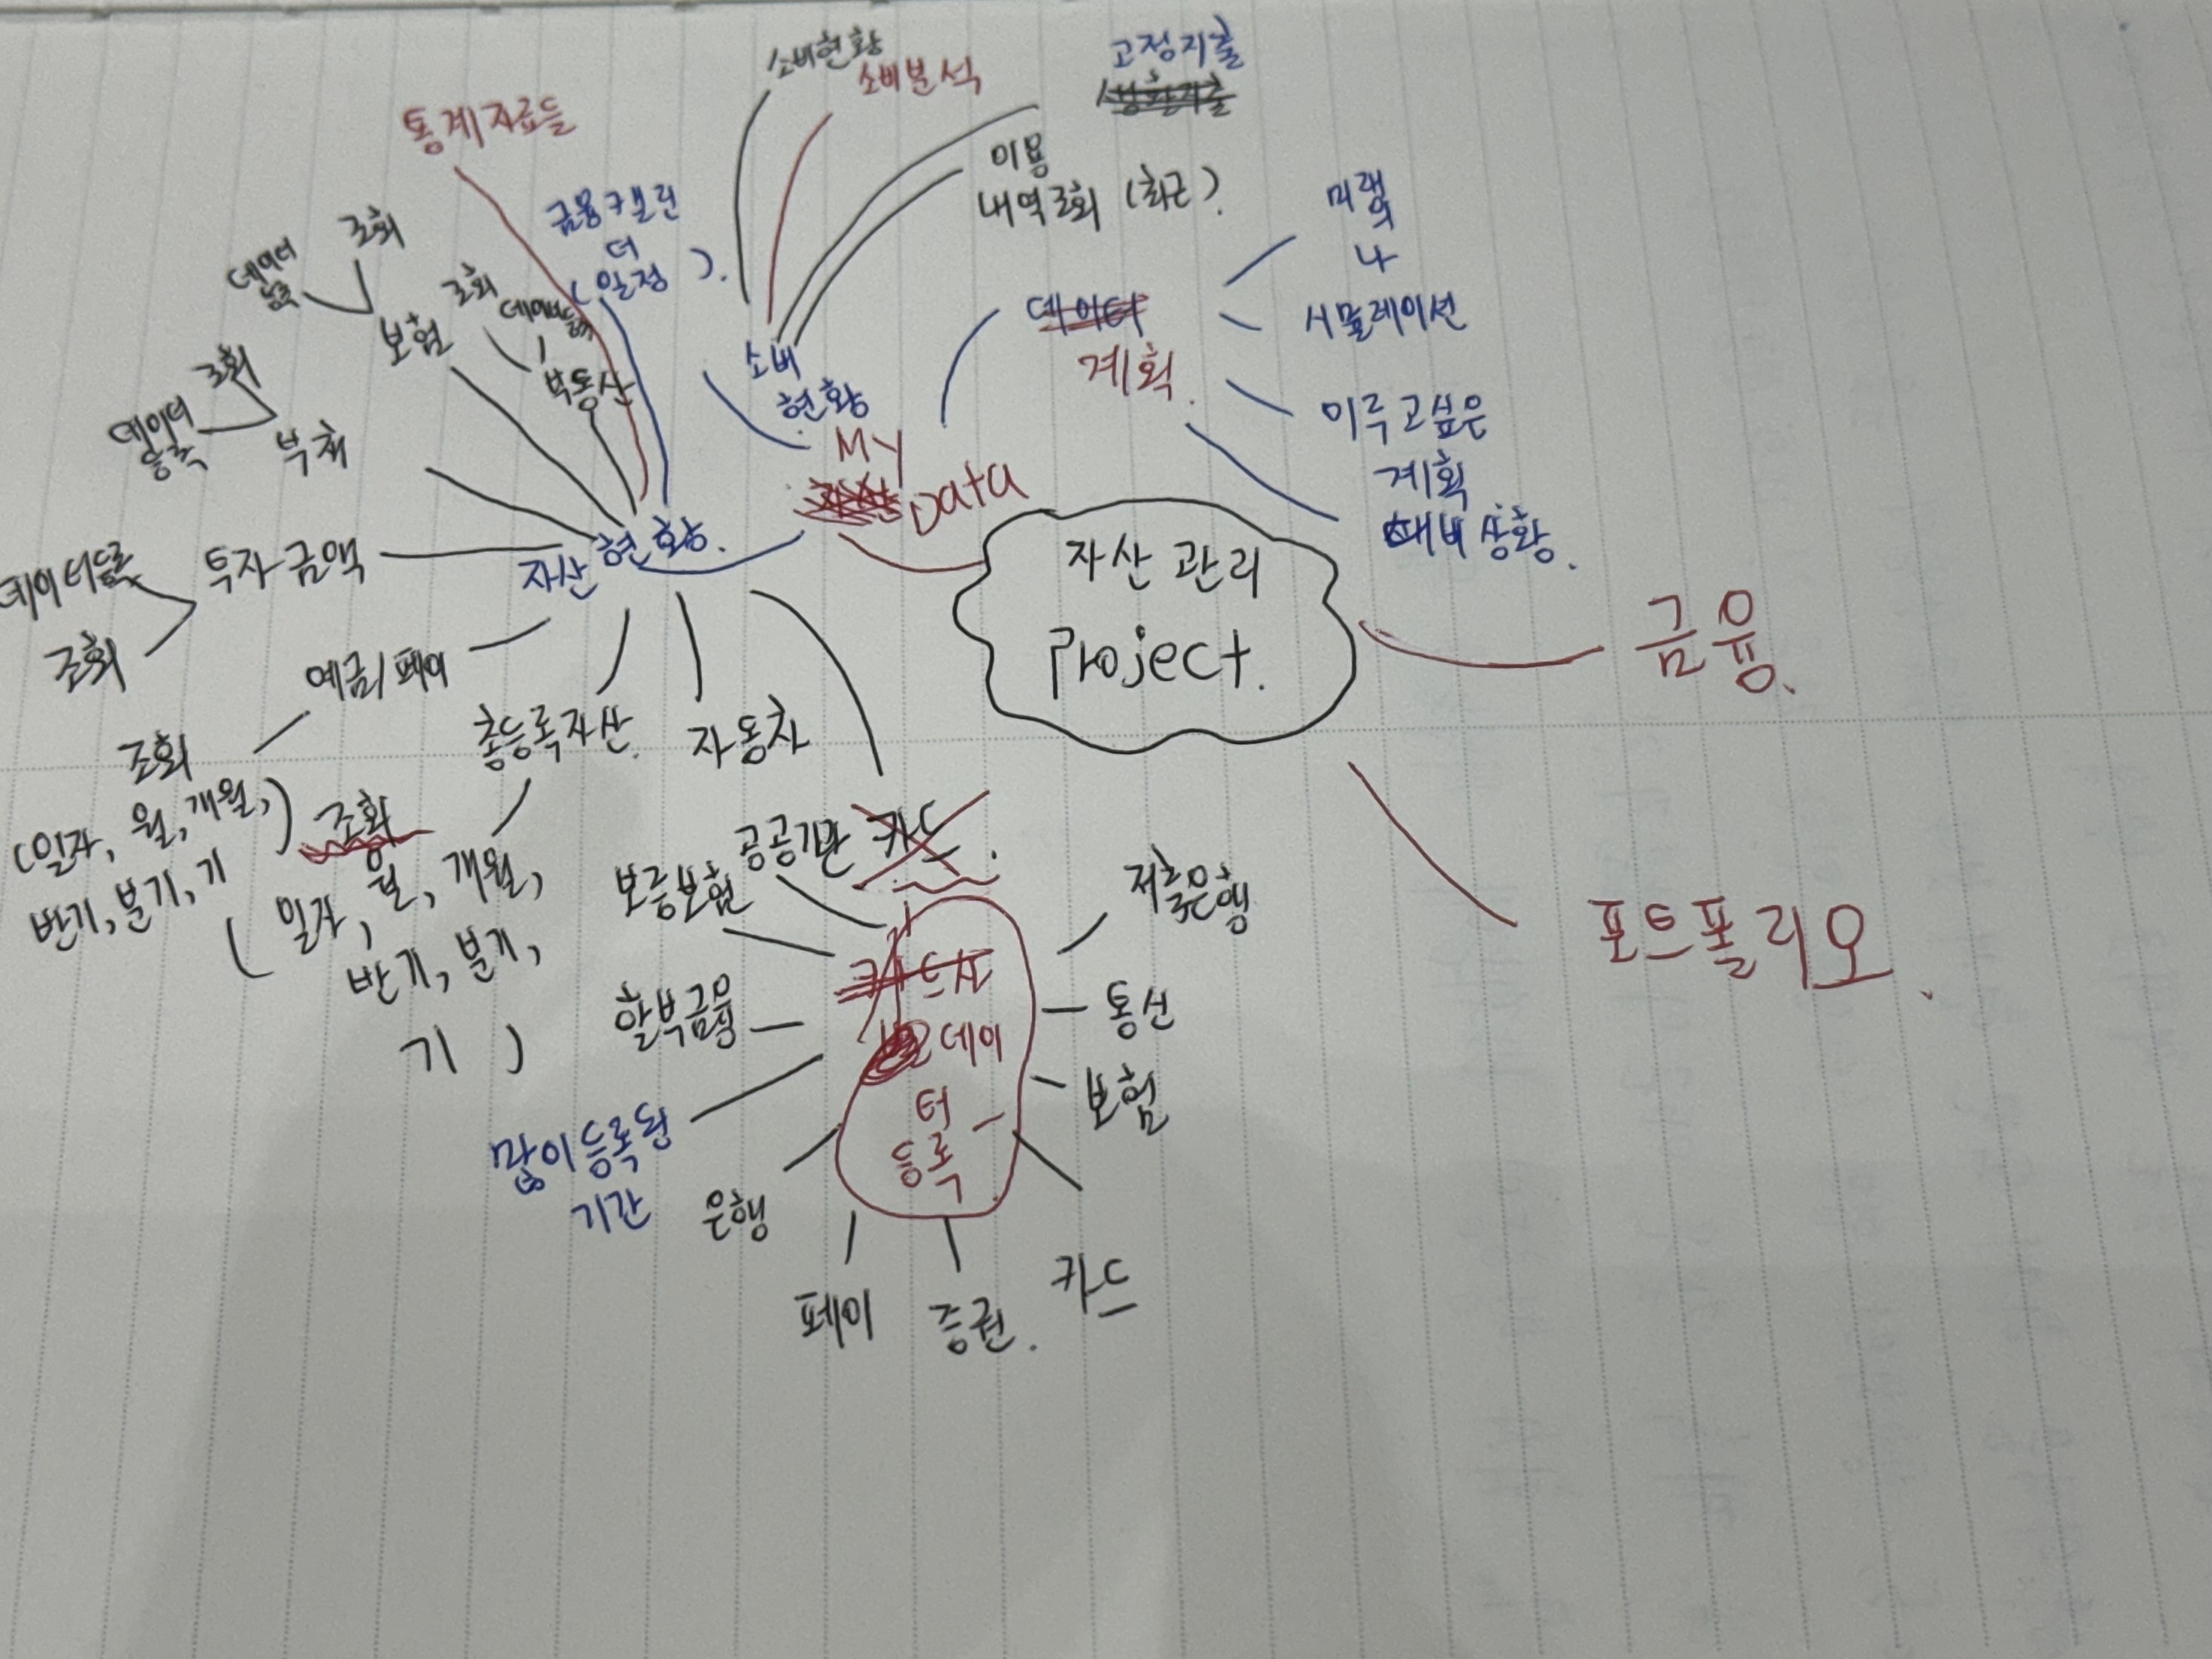 소비현황
소비분석
고정지출
생활지출
통계자료들
이용
내역조회 (최근).
금융캘린
더
(일정).
미래
의
나
시뮬레이션
조회
데이터
보험
조회
부동산
데이터
계획.
소비
현황
이루고싶은
계획
대비상황.
조회
데이터
등록
부채
My
Data
자산현황.
투자금액
데이터등록
조회
자산 관리
Project.
금융.
포트폴리오.
예금/페이
총등록자산.
자동차
조회
(일자, 월, 개월,)
반기, 분기, 기
조회
(일자, 월, 개월,
반기, 분기,
기)
공공기관
카드.
보증보험
저축은행
카드사
데이
터
등록
할부금융
통신
보험
많이등록왕
기간
은행
페이
증권.
카드